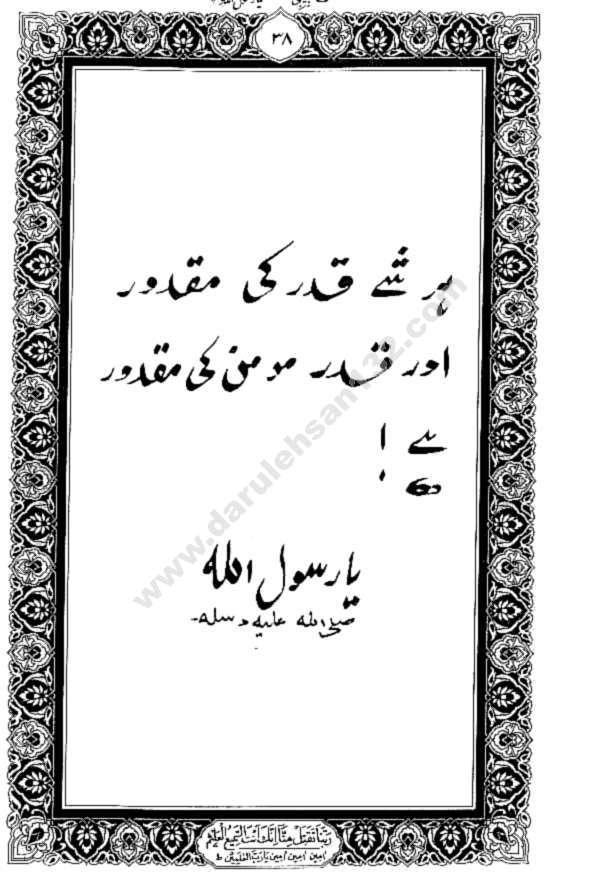 ۳۸
ہر شے قدر کی مقدور
اور قدر مومن کی مقدور
ہے !
یا رسول اللہ
صلی اللہ علیہ وسلم۔
www.darulehsan132.com
ربنا تقبل منا انك انت السميع العليم
امين امين امين يا رب العلمين ط